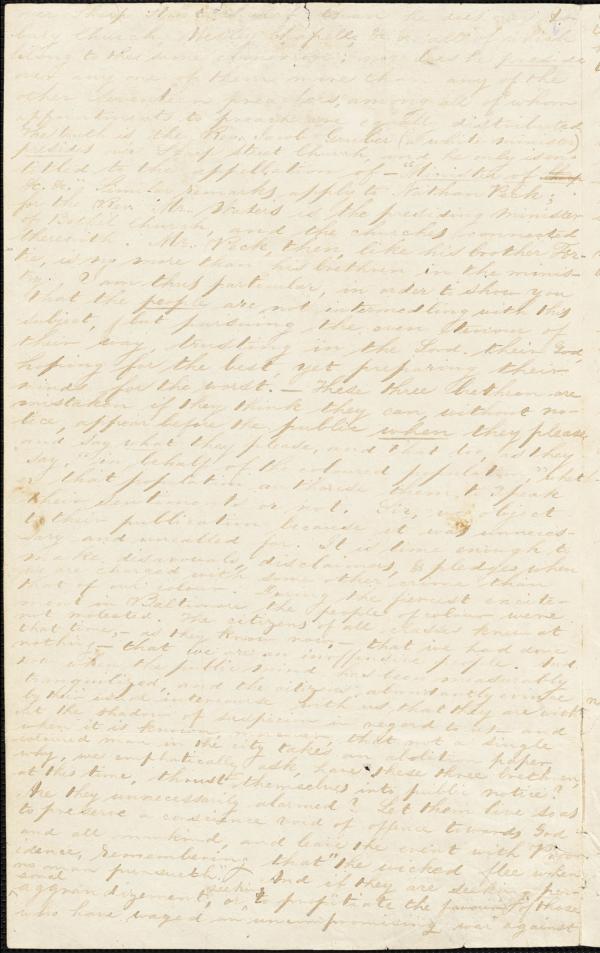 over Sharp Street church
bury Church, Wesley Chapel, &c. &c. all of which
belong to the same nor does he preside
over any one of them more than any of the
other seventeen preachers, among all of whom
appointments to preach are equally distributed
The truth is the Rev. Jacob Gruber (a white minister)
presides over Sharp street Church, and he only is en-
titled to the appellation of — "Minister of
&c. &c. Similar remarks apply to Nathan Peck;
for the Rev. Mr. Waters is the presiding minister
of Bethel Church, and the churches connected
therewith. Mr. Peck, then, like his brother For-
tie, is no more than his brethren in the minis-
try. I am thus particular, in order to show you
that the people are not intermedling with this
subject, but pursuing the even tenour of
their way, trusting in the Lord their God,
hoping for the best, yet preparing their
minds for the worst. — These three brethren are
mistaken if they think they can, without no-
tice, appear before the public when they please
and say what they please, and that too, as they
say, "in behalf of the coloured population," wheth-
er that population authorise them to speak
their sentiments or not. Sir, we object
to their publication because it was unneces-
sary and uncalled for. It is time enough to
make disavowals, disclaimers, & pledges when
we are charged with some other crime than
that of our colour. During the fiercest excite-
ment in Baltimore the people of colour were
not molested. The citizens of all classes knew at
that time, — as they know now, — that we had done
nothing — that we are an inoffensive people. And
now when the public mind has been measurably
tranquilized, and the citizens abundantly evince
by their usual intercourse with us, that they are with-
out the shadow of suspicion in regard to us — and
when it is known, moreover, that not a single
coloured man in the city takes an abolition paper
why, we emphatically ask, have these three brethren,
at this time, thrust themselves into public notice?
Are they unnecessarily alarmed? Let them live so as
to preserve a conscience void of offence towards God
and all mankind, and leave the event with Provi-
dence, remembering that "the wicked flee when
no man pursueth." And if they are seeking per-
sonal
aggrandizement, or seeking to propitiate the favour of those
who have waged an uncompromising war against